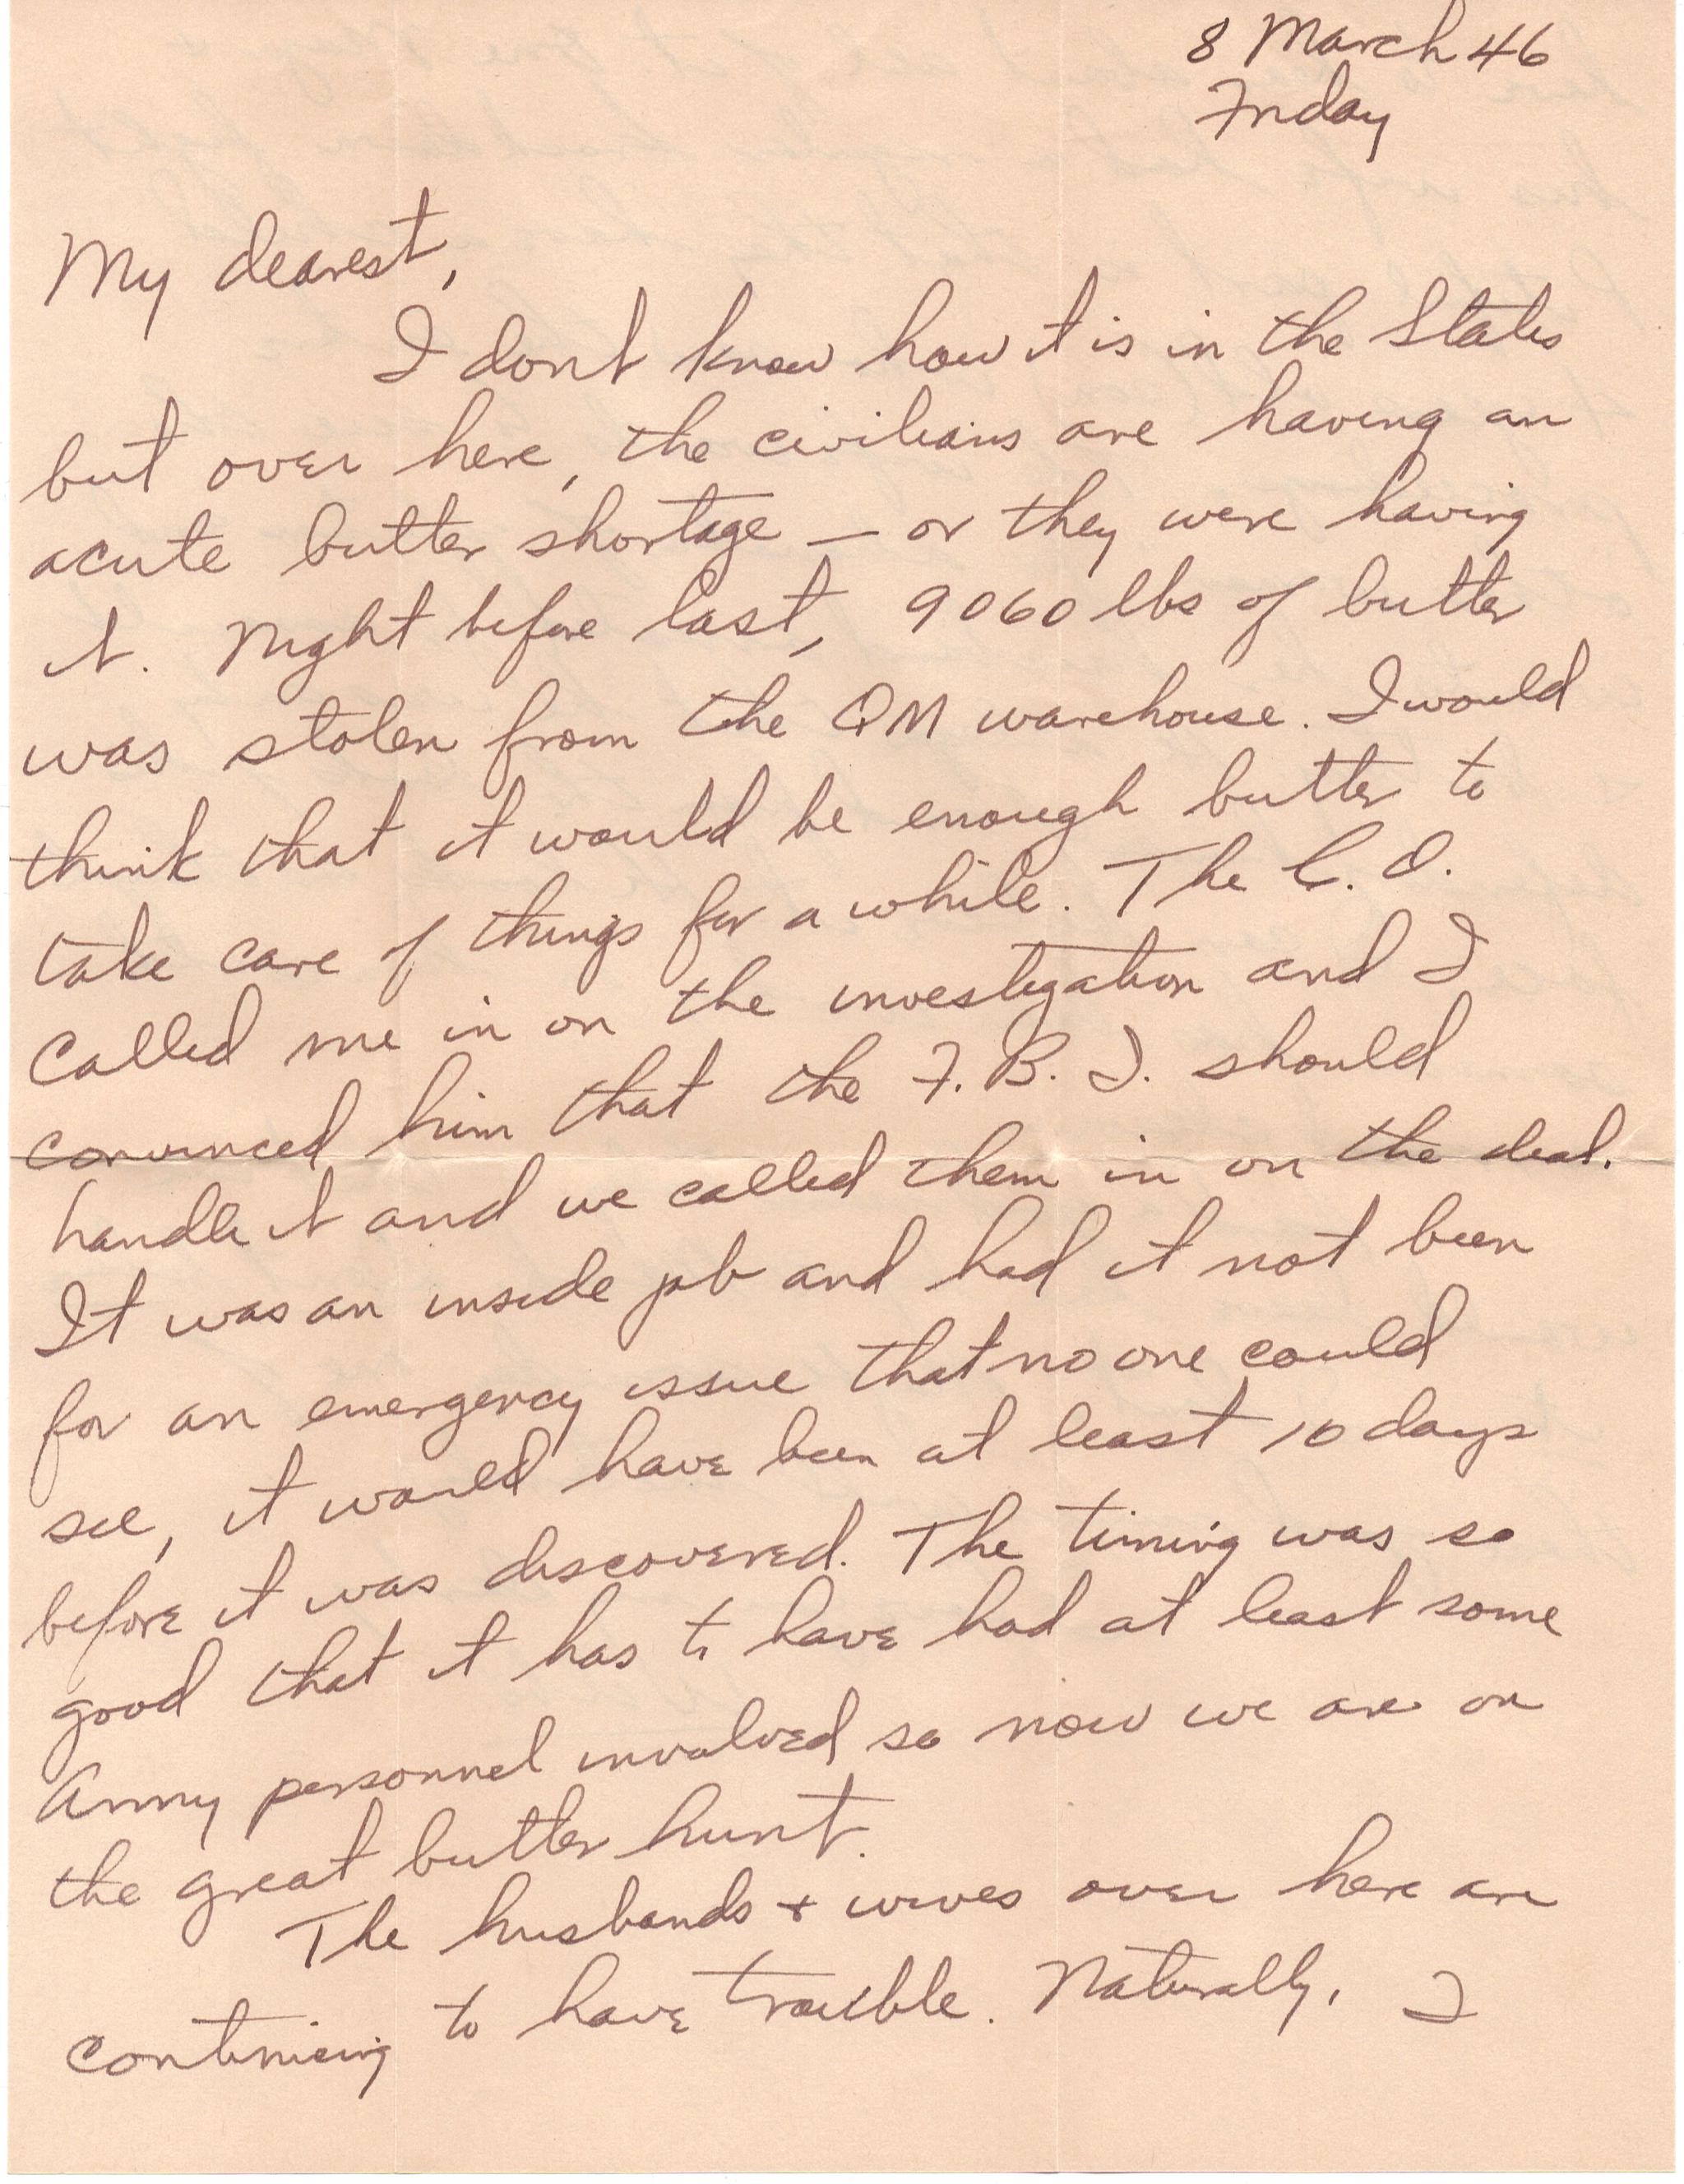 8 March 46
Friday
My dearest,
I dont know how it is in the States
but over here, the civilians are having an
acute butter shortage — or they were having
it. Night before last, 9060 lbs of butter
was stolen from the QM warehouse. I would
think that it would be enough butter to
take care of things for a while. The C.O.
called me in on the investigation and I
convinced him that the F.B.I. should
handle it and we called them in on the deal.
It was an inside job and had it not been
for an emergency issue that no one could
see, it would have been at least 10 days
before it was discovered. The timing was so
good that it has to have had at least some
Army personnel involved so now we are on
the great butter hunt.
The husbands + wives over here are
continuing to have trouble. Naturally, I